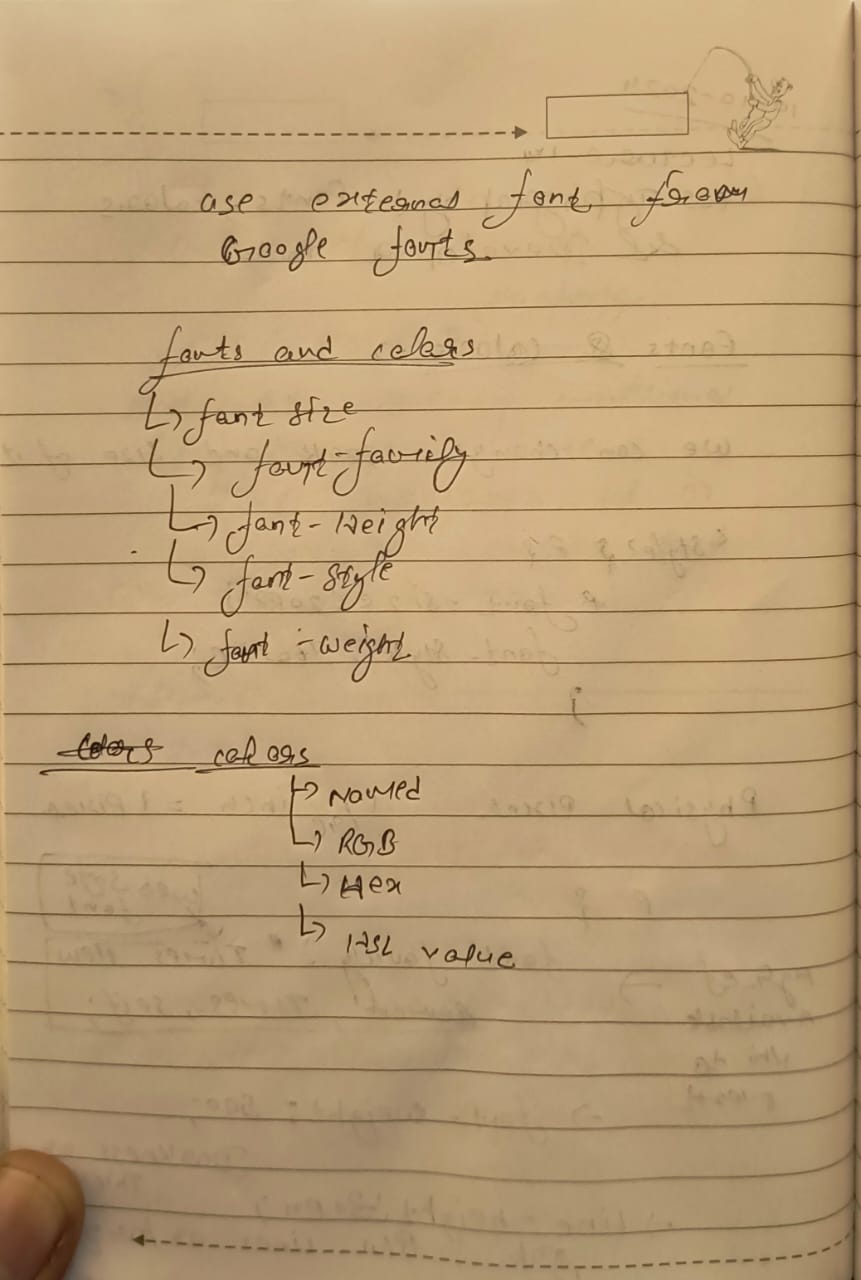 use external font from
Google fonts.
fonts and colors
↳ font size
↳ font-family
↳ font-Height
↳ font-style
↳ font-weight
colors colors
↳ Named
↳ RGB
↳ Hex
↳ HSL value